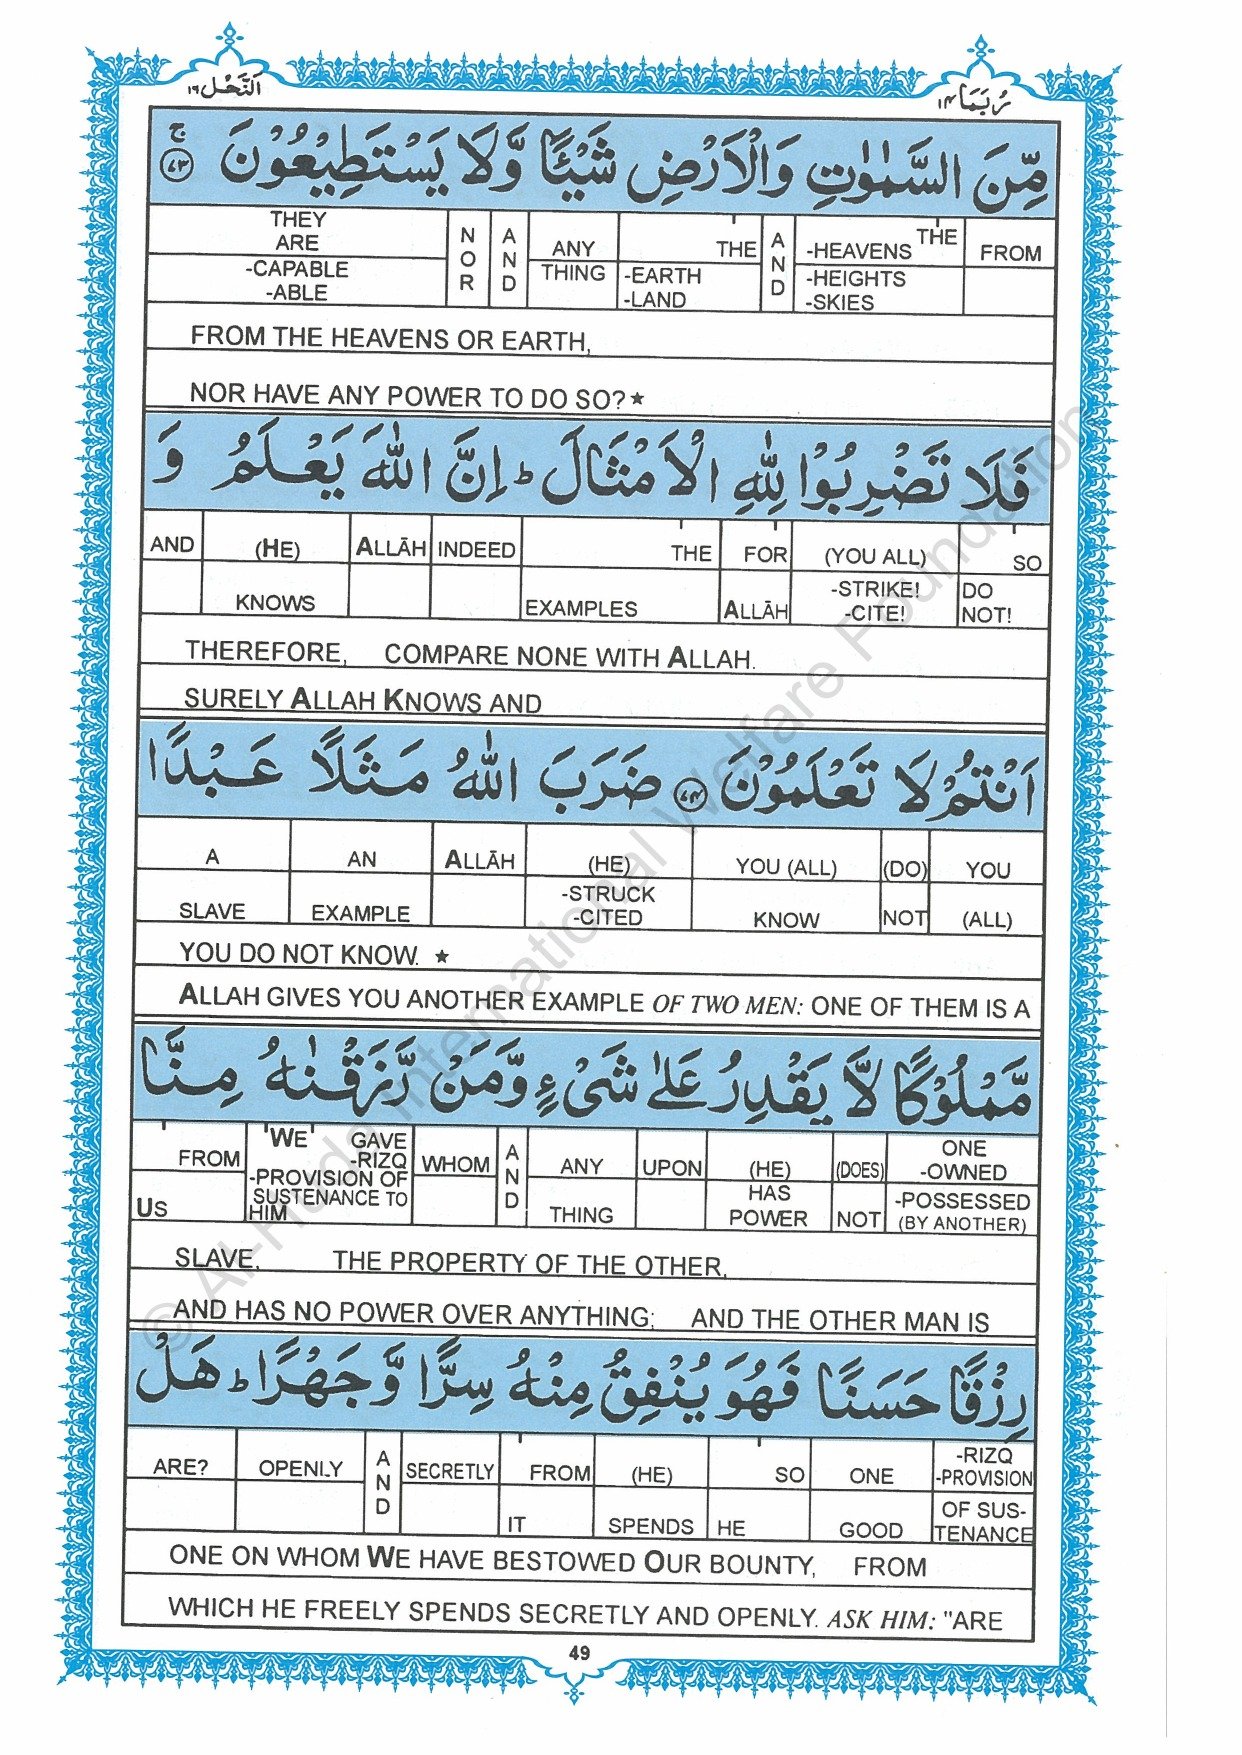 اَلنَّحْل ١٦
رُبَمَا ١٤
مِّنَ السَّمٰوٰتِ وَالْاَرْضِ شَيْئًا وَّلَا يَسْتَطِيْعُوْنَ ﴿٧٣﴾ ج
THEY ARE NOR AND ANY THE AND -HEAVENS THE FROM
-CAPABLE -ABLE THING -EARTH -LAND -HEIGHTS -SKIES
FROM THE HEAVENS OR EARTH,
NOR HAVE ANY POWER TO DO SO? ★
فَلَا تَضْرِبُوْا لِلّٰهِ الْاَمْثَالَ ط اِنَّ اللّٰهَ يَعْلَمُ وَ
AND (HE) ALLĀH INDEED THE FOR (YOU ALL) SO
KNOWS EXAMPLES ALLĀH -STRIKE! -CITE! DO NOT!
THEREFORE, COMPARE NONE WITH ALLAH.
SURELY ALLAH KNOWS AND
اَنْتُمْ لَا تَعْلَمُوْنَ ﴿٧٤﴾ ضَرَبَ اللّٰهُ مَثَلًا عَبْدًا
A AN ALLĀH (HE) YOU (ALL) (DO) YOU
SLAVE EXAMPLE -STRUCK -CITED KNOW NOT (ALL)
YOU DO NOT KNOW. ★
ALLAH GIVES YOU ANOTHER EXAMPLE OF TWO MEN: ONE OF THEM IS A
مَّمْلُوْكًا لَّا يَقْدِرُ عَلٰى شَيْءٍ وَّمَنْ رَّزَقْنٰهُ مِنَّا
FROM 'WE' GAVE -RIZQ WHOM AND ANY UPON (HE) (DOES) ONE -OWNED
US -PROVISION OF SUSTENANCE TO HIM THING HAS POWER NOT -POSSESSED (BY ANOTHER)
SLAVE, THE PROPERTY OF THE OTHER,
AND HAS NO POWER OVER ANYTHING; AND THE OTHER MAN IS
رِزْقًا حَسَنًا فَهُوَ يُنْفِقُ مِنْهُ سِرًّا وَّ جَهْرًا ط هَلْ
ARE? OPENLY AND SECRETLY FROM (HE) SO ONE -RIZQ -PROVISION
IT SPENDS HE GOOD OF SUS- TENANCE
ONE ON WHOM WE HAVE BESTOWED OUR BOUNTY, FROM
WHICH HE FREELY SPENDS SECRETLY AND OPENLY. ASK HIM: "ARE
49
© Al-Huda International Welfare Foundation